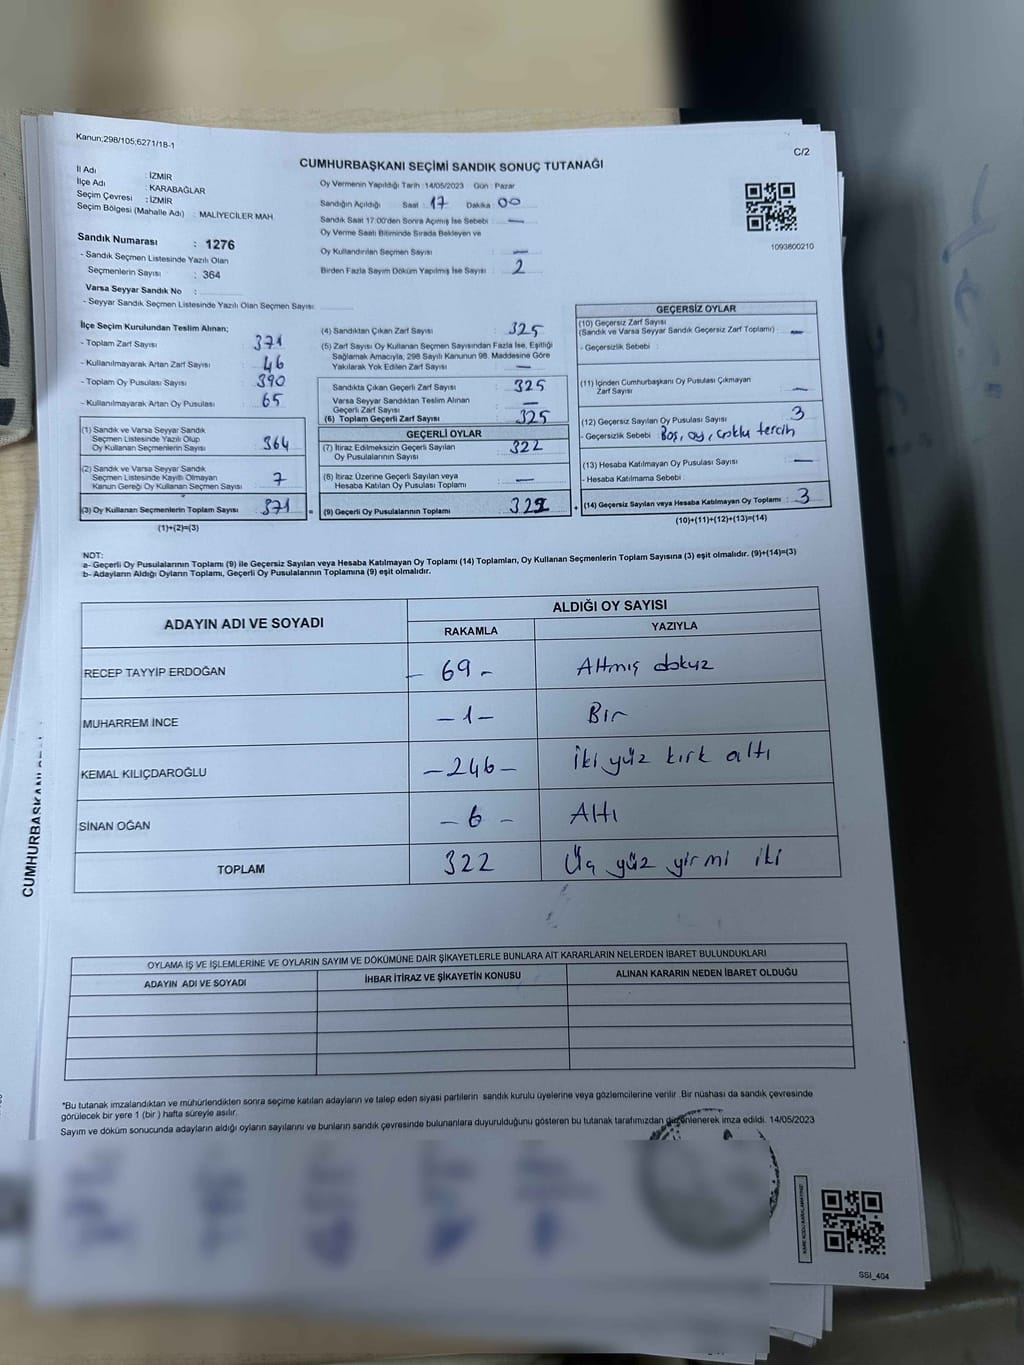 Kanun;298/105;6271/18-1
C/2
CUMHURBAŞKANI SEÇİMİ SANDIK SONUÇ TUTANAĞI
İl Adı : İZMİR
İlçe Adı : KARABAĞLAR
Seçim Çevresi : İZMİR
Seçim Bölgesi (Mahalle Adı) : MALİYECİLER MAH.
Sandık Numarası : 1276
- Sandık Seçmen Listesinde Yazılı Olan
Seçmenlerin Sayısı : 364
Varsa Seyyar Sandık No :
- Seyyar Sandık Seçmen Listesinde Yazılı Olan Seçmen Sayısı:
Oy Vermenin Yapıldığı Tarih :14/05/2023 Gün : Pazar
Sandığın Açıldığı Saat : 17 Dakika : 00
Sandık Saat 17:00'den Sonra Açılmış İse Sebebi : —
Oy Verme Saati Bitiminde Sırada Bekleyen ve
Oy Kullandırılan Seçmen Sayısı : —
Birden Fazla Sayım Döküm Yapılmış İse Sayısı : 2
1093800210
İlçe Seçim Kurulundan Teslim Alınan;
- Toplam Zarf Sayısı : 371
- Kullanılmayarak Artan Zarf Sayısı : 46
- Toplam Oy Pusulası Sayısı : 390
- Kullanılmayarak Artan Oy Pusulası : 65
(1) Sandık ve Varsa Seyyar Sandık
Seçmen Listesinde Yazılı Olup
Oy Kullanan Seçmenlerin Sayısı : 364
(2) Sandık ve Varsa Seyyar Sandık
Seçmen Listesinde Kayıtlı Olmayan
Kanun Gereği Oy Kullanan Seçmen Sayısı : 7
(3) Oy Kullanan Seçmenlerin Toplam Sayısı : 371
(1)+(2)=(3)
(4) Sandıktan Çıkan Zarf Sayısı : 325
(5) Zarf Sayısı Oy Kullanan Seçmen Sayısından Fazla İse, Eşitliği
Sağlamak Amacıyla, 298 Sayılı Kanunun 98. Maddesine Göre
Yakılarak Yok Edilen Zarf Sayısı : —
Sandıkta Çıkan Geçerli Zarf Sayısı : 325
Varsa Seyyar Sandıktan Teslim Alınan
Geçerli Zarf Sayısı : —
(6) Toplam Geçerli Zarf Sayısı : 325
GEÇERLİ OYLAR
(7) İtiraz Edilmeksizin Geçerli Sayılan
Oy Pusulalarının Sayısı : 322
(8) İtiraz Üzerine Geçerli Sayılan veya
Hesaba Katılan Oy Pusulası Toplamı : —
= (9) Geçerli Oy Pusulalarının Toplamı : 322
GEÇERSİZ OYLAR
(10) Geçersiz Zarf Sayısı
(Sandık ve Varsa Seyyar Sandık Geçersiz Zarf Toplamı) : —
- Geçersizlik Sebebi :
(11) İçinden Cumhurbaşkanı Oy Pusulası Çıkmayan
Zarf Sayısı : —
(12) Geçersiz Sayılan Oy Pusulası Sayısı : 3
- Geçersizlik Sebebi : Boş, oy, çoklu tercih
(13) Hesaba Katılmayan Oy Pusulası Sayısı : —
- Hesaba Katılmama Sebebi :
+ (14) Geçersiz Sayılan veya Hesaba Katılmayan Oy Toplamı : 3
(10)+(11)+(12)+(13)=(14)
NOT:
a- Geçerli Oy Pusulalarının Toplamı (9) ile Geçersiz Sayılan veya Hesaba Katılmayan Oy Toplamı (14) Toplamları, Oy Kullanan Seçmenlerin Toplam Sayısına (3) eşit olmalıdır. (9)+(14)=(3)
b- Adayların Aldığı Oyların Toplamı, Geçerli Oy Pusulalarının Toplamına (9) eşit olmalıdır.
ADAYIN ADI VE SOYADI
ALDIĞI OY SAYISI
RAKAMLA YAZIYLA
RECEP TAYYİP ERDOĞAN - 69 - Altmış dokuz
MUHARREM İNCE - 1 - Bir
KEMAL KILIÇDAROĞLU - 246 - İki yüz kırk altı
SİNAN OĞAN - 6 - Altı
TOPLAM 322 Üç yüz yirmi iki
OYLAMA İŞ VE İŞLEMLERİNE VE OYLARIN SAYIM VE DÖKÜMÜNE DAİR ŞİKAYETLERLE BUNLARA AİT KARARLARIN NELERDEN İBARET BULUNDUKLARI
ADAYIN ADI VE SOYADI İHBAR İTİRAZ VE ŞİKAYETİN KONUSU ALINAN KARARIN NEDEN İBARET OLDUĞU
*Bu tutanak imzalandıktan ve mühürlendikten sonra seçime katılan adayların ve talep eden siyasi partilerin sandık kurulu üyelerine veya gözlemcilerine verilir. Bir nüshası da sandık çevresinde
görülecek bir yere 1 (bir) hafta süreyle asılır.
Sayım ve döküm sonucunda adayların aldığı oyların sayılarını ve bunların sandık çevresinde bulunanlara duyurulduğunu gösteren bu tutanak tarafımızdan düzenlenerek imza edildi. 14/05/2023
SSI_404